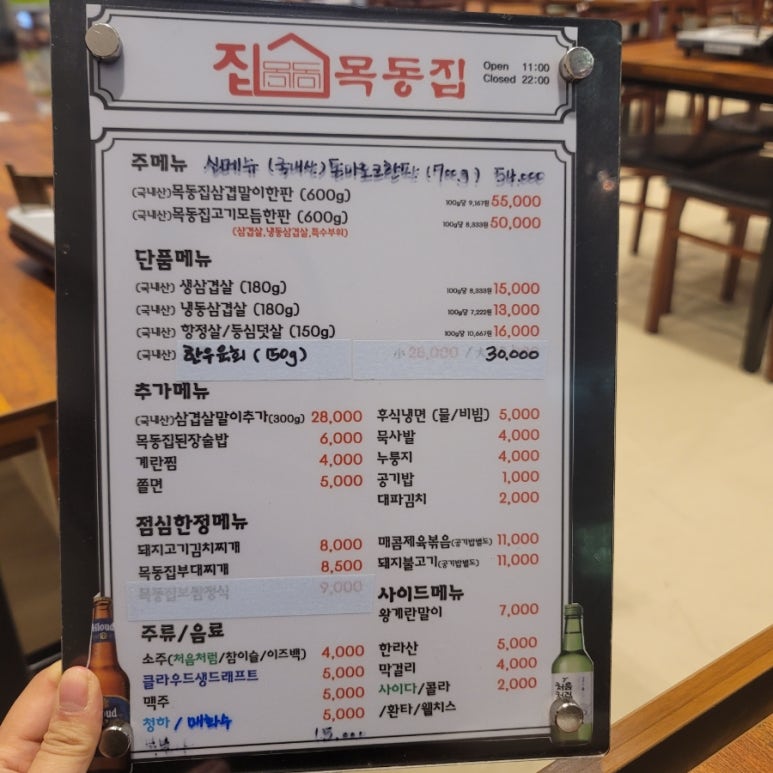 집 목동 목동집
Open 11:00
Closed 22:00
주메뉴 신메뉴 (국내산) 돈마호크한판 (700g) 54,000
(국내산)목동집삼겹말이한판 (600g) 100g당 9,167원 55,000
(국내산)목동집고기모듬한판 (600g) 100g당 8,333원 50,000
(삼겹살,냉동삼겹살,특수부위)
단품메뉴
(국내산) 생삼겹살 (180g) 100g당 8,333원 15,000
(국내산) 냉동삼겹살 (180g) 100g당 7,222원 13,000
(국내산) 항정살/등심덧살 (150g) 100g당 10,667원 16,000
(국내산) 한우육회 (150g) 30,000
추가메뉴
(국내산)삼겹살말이추가(300g) 28,000
목동집된장술밥 6,000
계란찜 4,000
쫄면 5,000
후식냉면 (물/비빔) 5,000
묵사발 4,000
누룽지 4,000
공기밥 1,000
대파김치 2,000
점심한정메뉴
돼지고기김치찌개 8,000
목동집부대찌개 8,500
목동집보쌈정식 9,000
매콤제육볶음(공기밥별도) 11,000
돼지불고기(공기밥별도) 11,000
사이드메뉴
왕계란말이 7,000
주류/음료
소주(처음처럼/참이슬/이즈백) 4,000
클라우드생드래프트 5,000
맥주 5,000
청하 / 매화수 5,000
한라산 5,000
막걸리 4,000
사이다/콜라 2,000
/환타/웰치스
처음
처럼